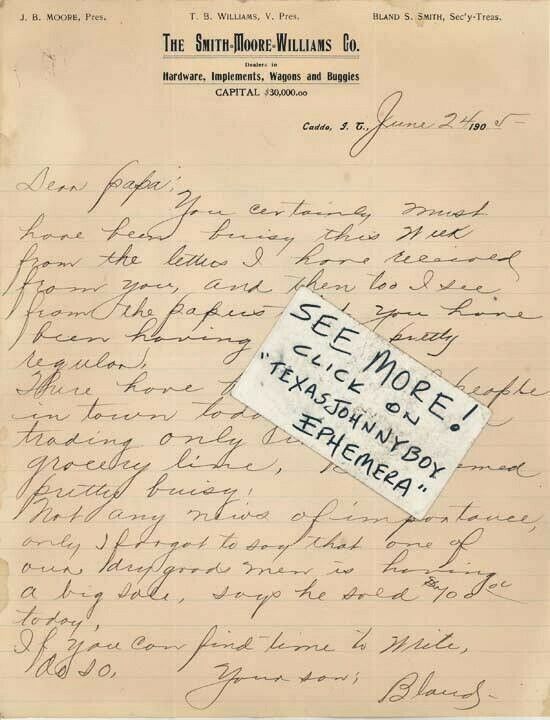 J. B. MOORE, Pres. T. B. WILLIAMS, V. Pres. BLAND S. SMITH, Sec'y-Treas.
THE SMITH-MOORE-WILLIAMS CO.
Dealers in
Hardware, Implements, Wagons and Buggies
CAPITAL $30,000.00
Caddo, I. T., June 24 1905-
Dear Papa;
You certainly must
have been buisy this Week
from the letters I have received
from you, and then too I see
from the papers you have
been having pretty
regular.
There have people
in town
trading only
grocery line,
pretty buisy.
Not any news of importance,
only I forgot to say that one of
our dry goods men is having
a big sale, says he sold
today.
If you can find time to write,
do so.
Your son;
Bland-
SEE MORE!
CLICK ON
"TEXASJOHNNYBOY
EPHEMERA"